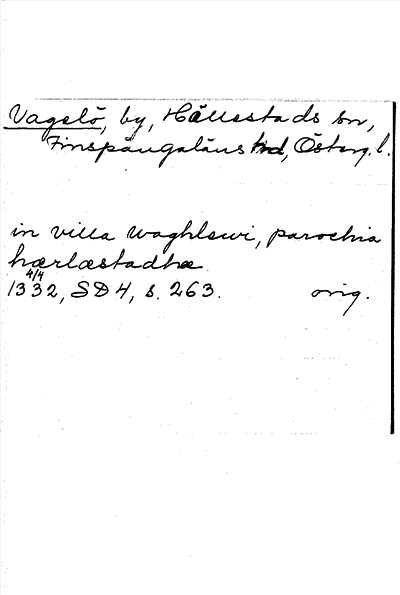 Vagelö, by, Hällestads sn,
Finspångaläns hd, Österg. l.
in villa waghlswi, parochia
hærlæstadhæ
4/4
1332, SD 4, s. 263. orig.